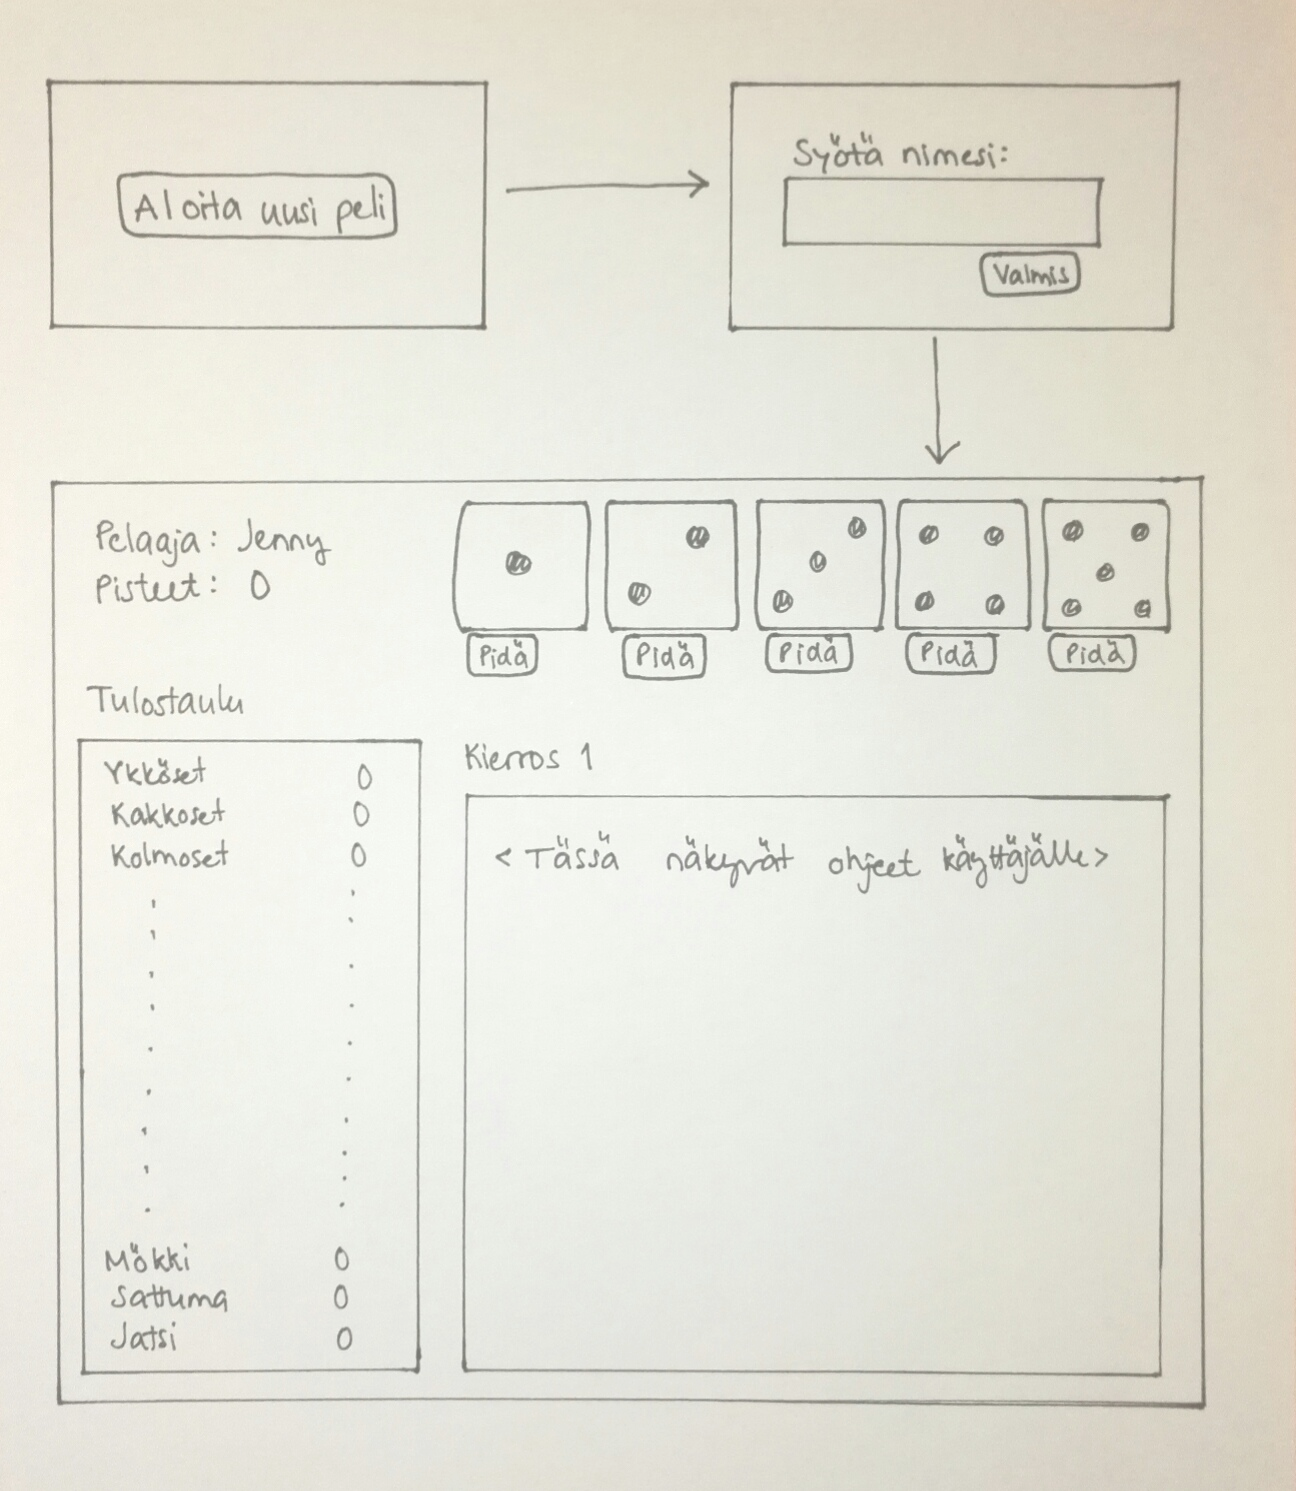 Aloita uusi peli
Syötä nimesi:
Valmis
Pelaaja: Jenny
Pisteet: 0
Pidä Pidä Pidä Pidä Pidä
Tulostaulu
Ykköset 0
Kakkoset 0
Kolmoset 0
Mökki 0
Sattuma 0
Jatsi 0
Kierros 1
<Tässä näkyvät ohjeet käyttäjälle>